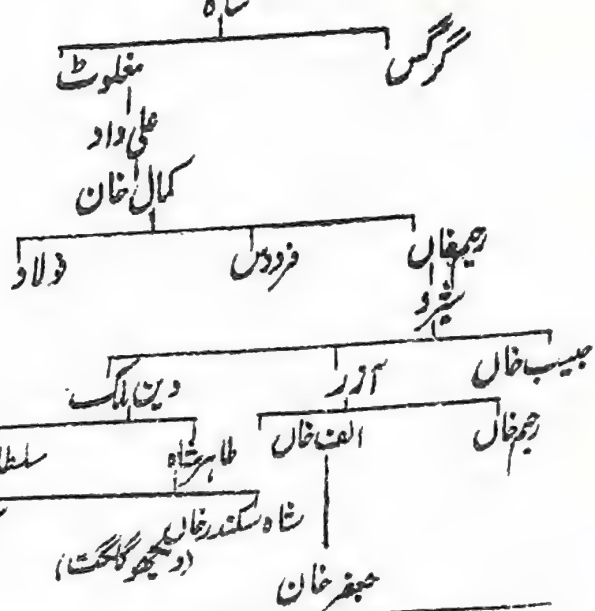 شاہ
گرگس مغلوٹ
علی داد
کمال خان
رحیم خاں فردوس فولاد
شیرو
حبیب خاں آزر دین ملک
رحیم خاں الف خاں طاہر شاہ
شاہ سکندر خاں
(دیکھو گلگت)
جعفر خان